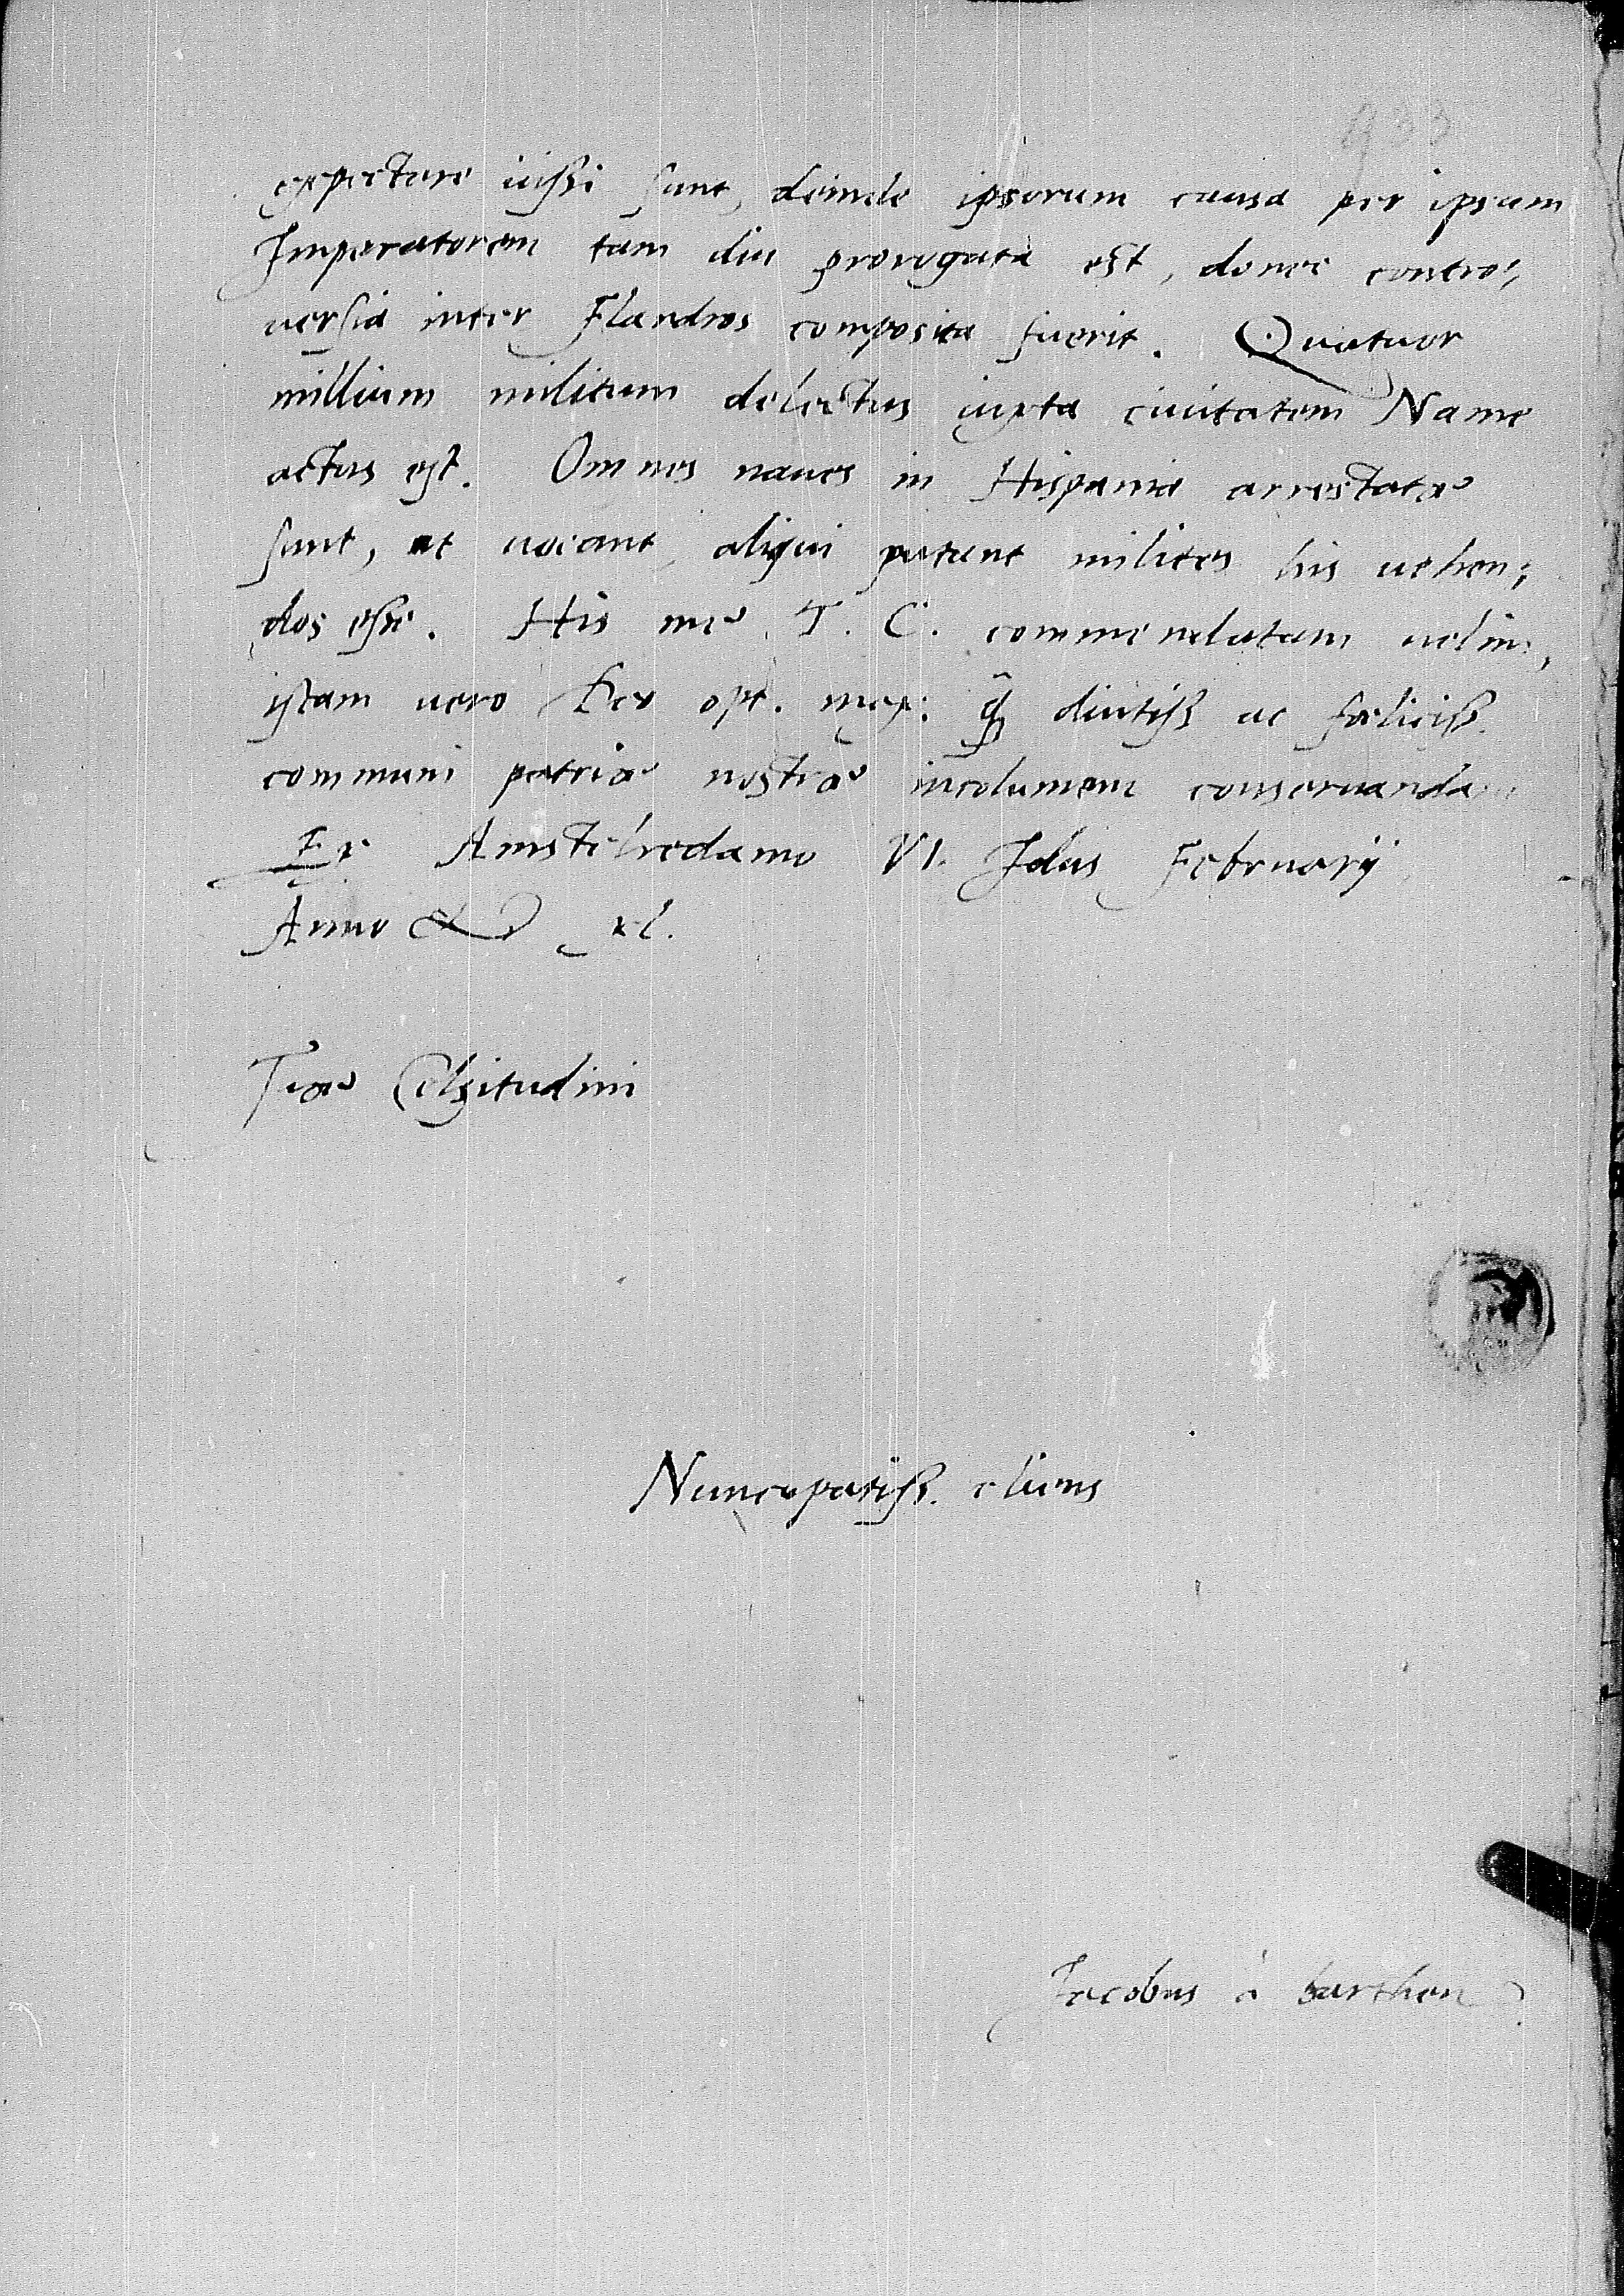 expectare iussi sunt, deinde ipsorum causa per ipsum
Imperatorem tam diu prorogata est, donec contro,
uersia inter Flandros composita fuerit. Quatuor
millium militum delectus iuxta ciuitatem Name
actus est. Omnes naues in Hispania arrestatae
sunt, ut uocant, aliqui putant milites his uehen,
dos esse. His me T. C. commendatum uelim,
istam uero Deo opt. max: q̃ diutiss ac foeliciss.
communi patriae nostrae incolumem conseruandam
Ex Amstelredamo VI. Idus Februarij
Anno & xl.
Tuae Celsitudini
Nuncupatiss. cliens
Jacobus à barthen